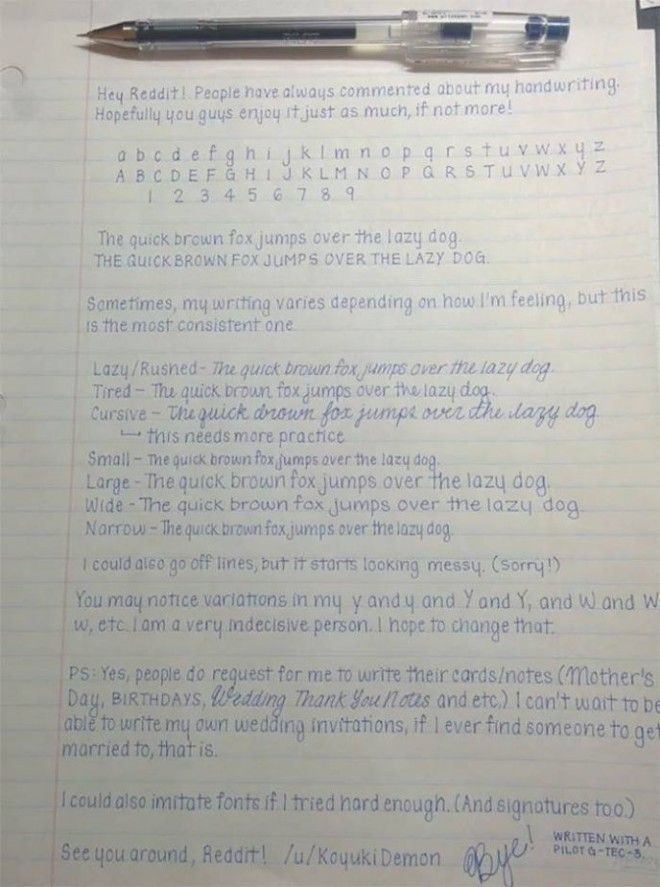 PILOT
Hey Reddit! People have always commented about my handwriting.
Hopefully you guys enjoy it just as much, if not more!
a b c d e f g h i j k l m n o p q r s t u v w x y z
A B C D E F G H I J K L M N O P Q R S T U V W X Y Z
1 2 3 4 5 6 7 8 9
The quick brown fox jumps over the lazy dog.
THE QUICK BROWN FOX JUMPS OVER THE LAZY DOG.
Sometimes, my writing varies depending on how I'm feeling, but this
is the most consistent one.
Lazy/Rushed - The quick brown fox jumps over the lazy dog.
Tired - The quick brown fox jumps over the lazy dog.
Cursive - The quick brown fox jumps over the lazy dog
↳ this needs more practice
Small - The quick brown fox jumps over the lazy dog.
Large - The quick brown fox jumps over the lazy dog.
Wide - The quick brown fox jumps over the lazy dog.
Narrow - The quick brown fox jumps over the lazy dog.
I could also go off lines, but it starts looking messy. (Sorry!)
You may notice variations in my y and y and Y and Y, and W and W
w, etc. I am a very indecisive person. I hope to change that.
PS: Yes, people do request for me to write their cards/notes (Mother's
Day, BIRTHDAYS, Wedding Thank You Notes and etc.) I can't wait to be
able to write my own wedding invitations, if I ever find someone to get
married to, that is.
I could also imitate fonts if I tried hard enough. (And signatures too.)
See you around, Reddit! /u/KoyukiDemon Bye!
WRITTEN WITH A
PILOT G-TEC-3.